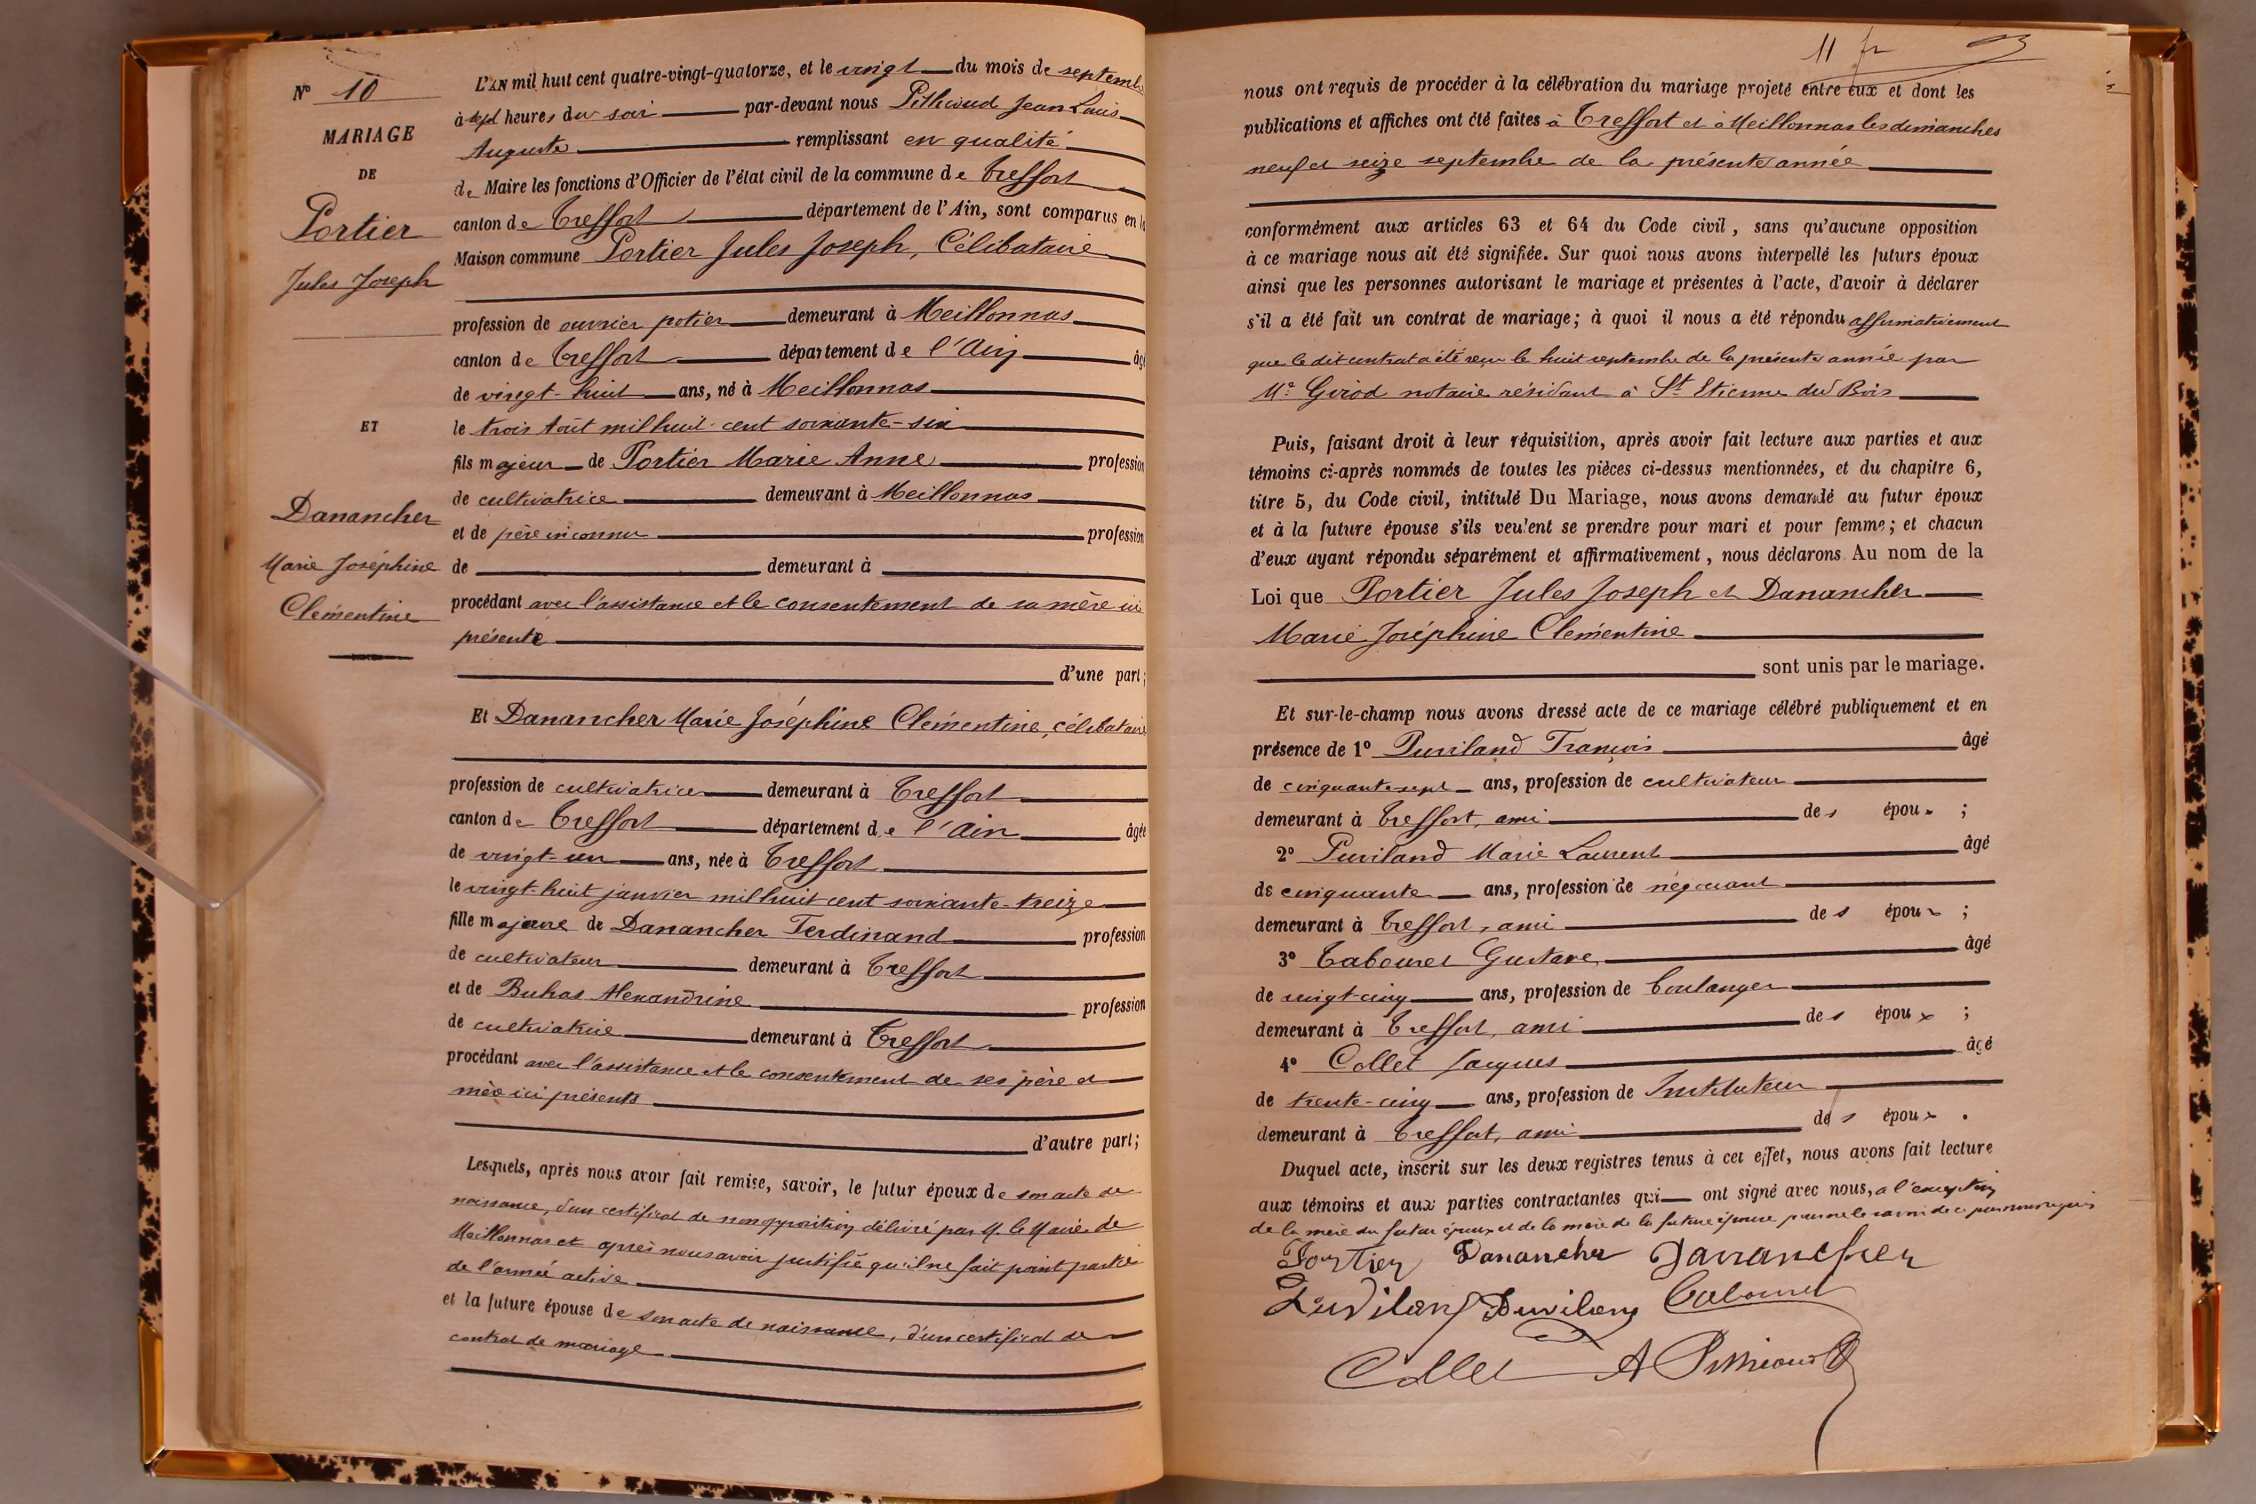 N° 10
MARIAGE
DE
Portier
Jules Joseph
ET
Danancher
Marie Joséphine
Clémentine
L'AN mil huit cent quatre-vingt-quatorze, et le vingt du mois de septemb
à sept heures du soir par-devant nous Pithioud Jean Louis
Auguste remplissant en qualité
de Maire les fonctions d'Officier de l'état civil de la commune de Treffort
canton de Treffort département de l'Ain, sont comparus en la
Maison commune Portier Jules Joseph, Célibataire
profession de ouvrier potier demeurant à Meillonnas
canton de Treffort département de l'Ain âgé
de vingt-huit ans, né à Meillonnas
le trois Août mil huit cent soixante-six
fils majeur de Portier Marie Anne profession
de cultivatrice demeurant à Meillonnas
et de père inconnu profession
de demeurant à
procédant avec l'assistance et le consentement de sa mère ici
présente
d'une part;
Et Danancher Marie Joséphine Clémentine, célibataire
profession de cultivatrice demeurant à Treffort
canton de Treffort département de l'Ain âgée
de vingt-un ans, née à Treffort
le vingt-huit janvier mil huit cent soixante-treize
fille majeure de Danancher Ferdinand profession
de cultivateur demeurant à Treffort
et de Buhas Alexandrine profession
de cultivatrice demeurant à Treffort
procédant avec l'assistance et le consentement de ses père et
mère ici présents
d'autre part;
Lesquels, après nous avoir fait remise, savoir, le futur époux de son acte de
naissance, d'un certificat de non opposition délivré par M. le Maire de
Meillonnas et après nous avoir justifié qu'il ne fait point partie
de l'armée active
et la future épouse de son acte de naissance, d'un certificat de
contrat de mariage
11
nous ont requis de procéder à la célébration du mariage projeté entre eux et dont les
publications et affiches ont été faites à Treffort et à Meillonnas les dimanches
neuf et seize septembre de la présente année
conformément aux articles 63 et 64 du Code civil, sans qu'aucune opposition
à ce mariage nous ait été signifiée. Sur quoi nous avons interpellé les futurs époux
ainsi que les personnes autorisant le mariage et présentes à l'acte, d'avoir à déclarer
s'il a été fait un contrat de mariage; à quoi il nous a été répondu affirmativement
que le dit contrat a été reçu le huit septembre de la présente année par
Me Girod notaire résidant à St Etienne du Bois
Puis, faisant droit à leur réquisition, après avoir fait lecture aux parties et aux
témoins ci-après nommés de toutes les pièces ci-dessus mentionnées, et du chapitre 6,
titre 5, du Code civil, intitulé Du Mariage, nous avons demandé au futur époux
et à la future épouse s'ils veulent se prendre pour mari et pour femme; et chacun
d'eux ayant répondu séparément et affirmativement, nous déclarons Au nom de la
Loi que Portier Jules Joseph et Danancher
Marie Joséphine Clémentine
sont unis par le mariage.
Et sur-le-champ nous avons dressé acte de ce mariage célébré publiquement et en
présence de 1° Puviland François âgé
de cinquante-sept ans, profession de cultivateur
demeurant à Treffort, ami des époux ;
2° Puviland Marie Laurent âgé
de cinquante ans, profession de négociant
demeurant à Treffort, ami des époux ;
3° Tabouret Gustave âgé
de vingt-cinq ans, profession de boulanger
demeurant à Treffort, ami des époux ;
4° Collet Jacques âgé
de trente-cinq ans, profession de Instituteur
demeurant à Treffort, ami des époux .
Duquel acte, inscrit sur les deux registres tenus à cet effet, nous avons fait lecture
aux témoins et aux parties contractantes qui ont signé avec nous, à l'exception
de la mère du futur époux et de la mère de la future épouse pour ne le savoir de ce par nous requis
Portier Danancher Danancher
Puviland Puviland Tabouret
Collet A Pithioud